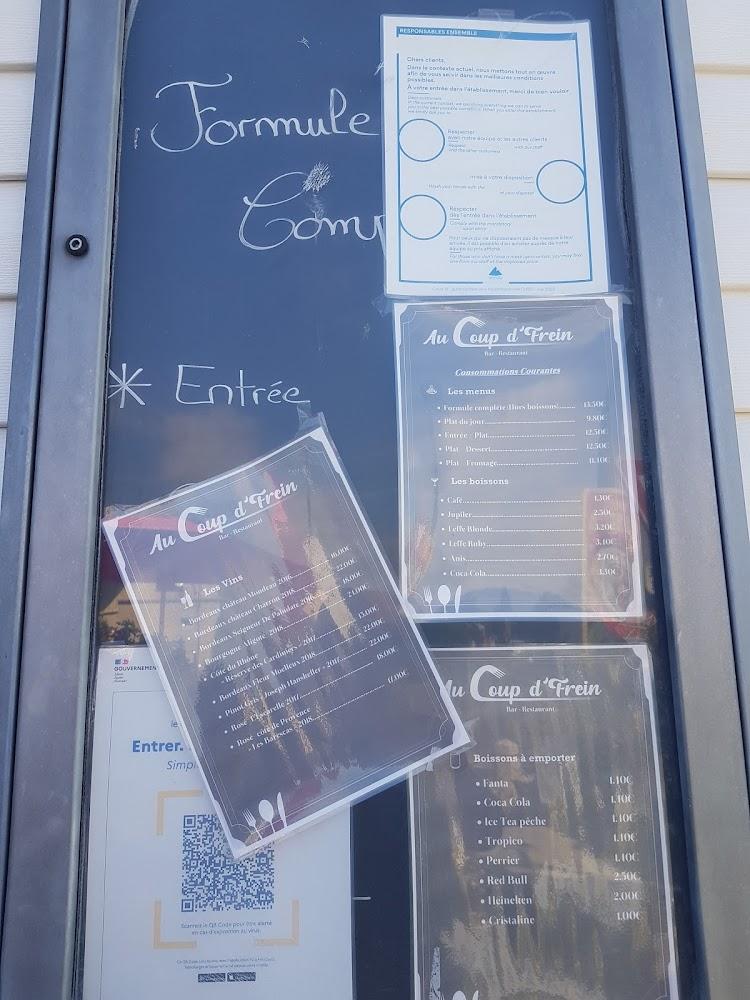 Formule
Comp
* Entrée
RESPONSABLES ENSEMBLE
Chers clients,
Dans le contexte actuel, nous mettons tout en œuvre
afin de vous servir dans les meilleures conditions
possibles.
À votre entrée dans l'établissement, merci de bien vouloir
Respecter
avec notre équipe et les autres clients
Respect with our staff
and the other customers
mise à votre disposition
Respecter
dès l'entrée dans l'établissement
Comply with the mandatory
upon entry
Au Coup d'Frein
Bar - Restaurant
Consommations Courantes
Les menus
• Formule complète (Hors boissons) 13.50€
• Plat du jour 9.80€
• Entrée / Plat 12.50€
• Plat / Dessert 12.50€
• Plat / Fromage 11.10€
Les boissons
• Café 1.30€
• Jupiler 2.50€
• Leffe Blonde 3.20€
• Leffe Ruby 3.40€
• Anis 2.70€
• Coca Cola 3.30€
Au Coup d'Frein
Bar - Restaurant
Les Vins
• Bordeaux château Mondeau 2016 16.00€
• Bordeaux château Charron 2018 22.00€
• Bordeaux Seigneur De 2016 18.00€
• Bourgogne Aligoté 2018 14.00€
• Côte du Rhône
Réserve des Cardinaux - 2017 15.00€
• Bordeaux Fleur Moelleux 2018 22.00€
• Pinot Gris Joseph 2017 22.00€
• Rosé 2017 18.00€
• Rosé côte de Provence
2018 17.00€
Au Coup d'Frein
Bar - Restaurant
Boissons à emporter
• Fanta 1.10€
• Coca Cola 1.10€
• Ice Tea pêche 1.10€
• Tropico 1.10€
• Perrier 1.10€
• Red Bull 2.50€
• Heineken 2.00€
• Cristaline 1.00€
GOUVERNEMENT
Entrer.
Simpl
Scannez le QR Code pour être alerté
en cas d'exposition au virus.